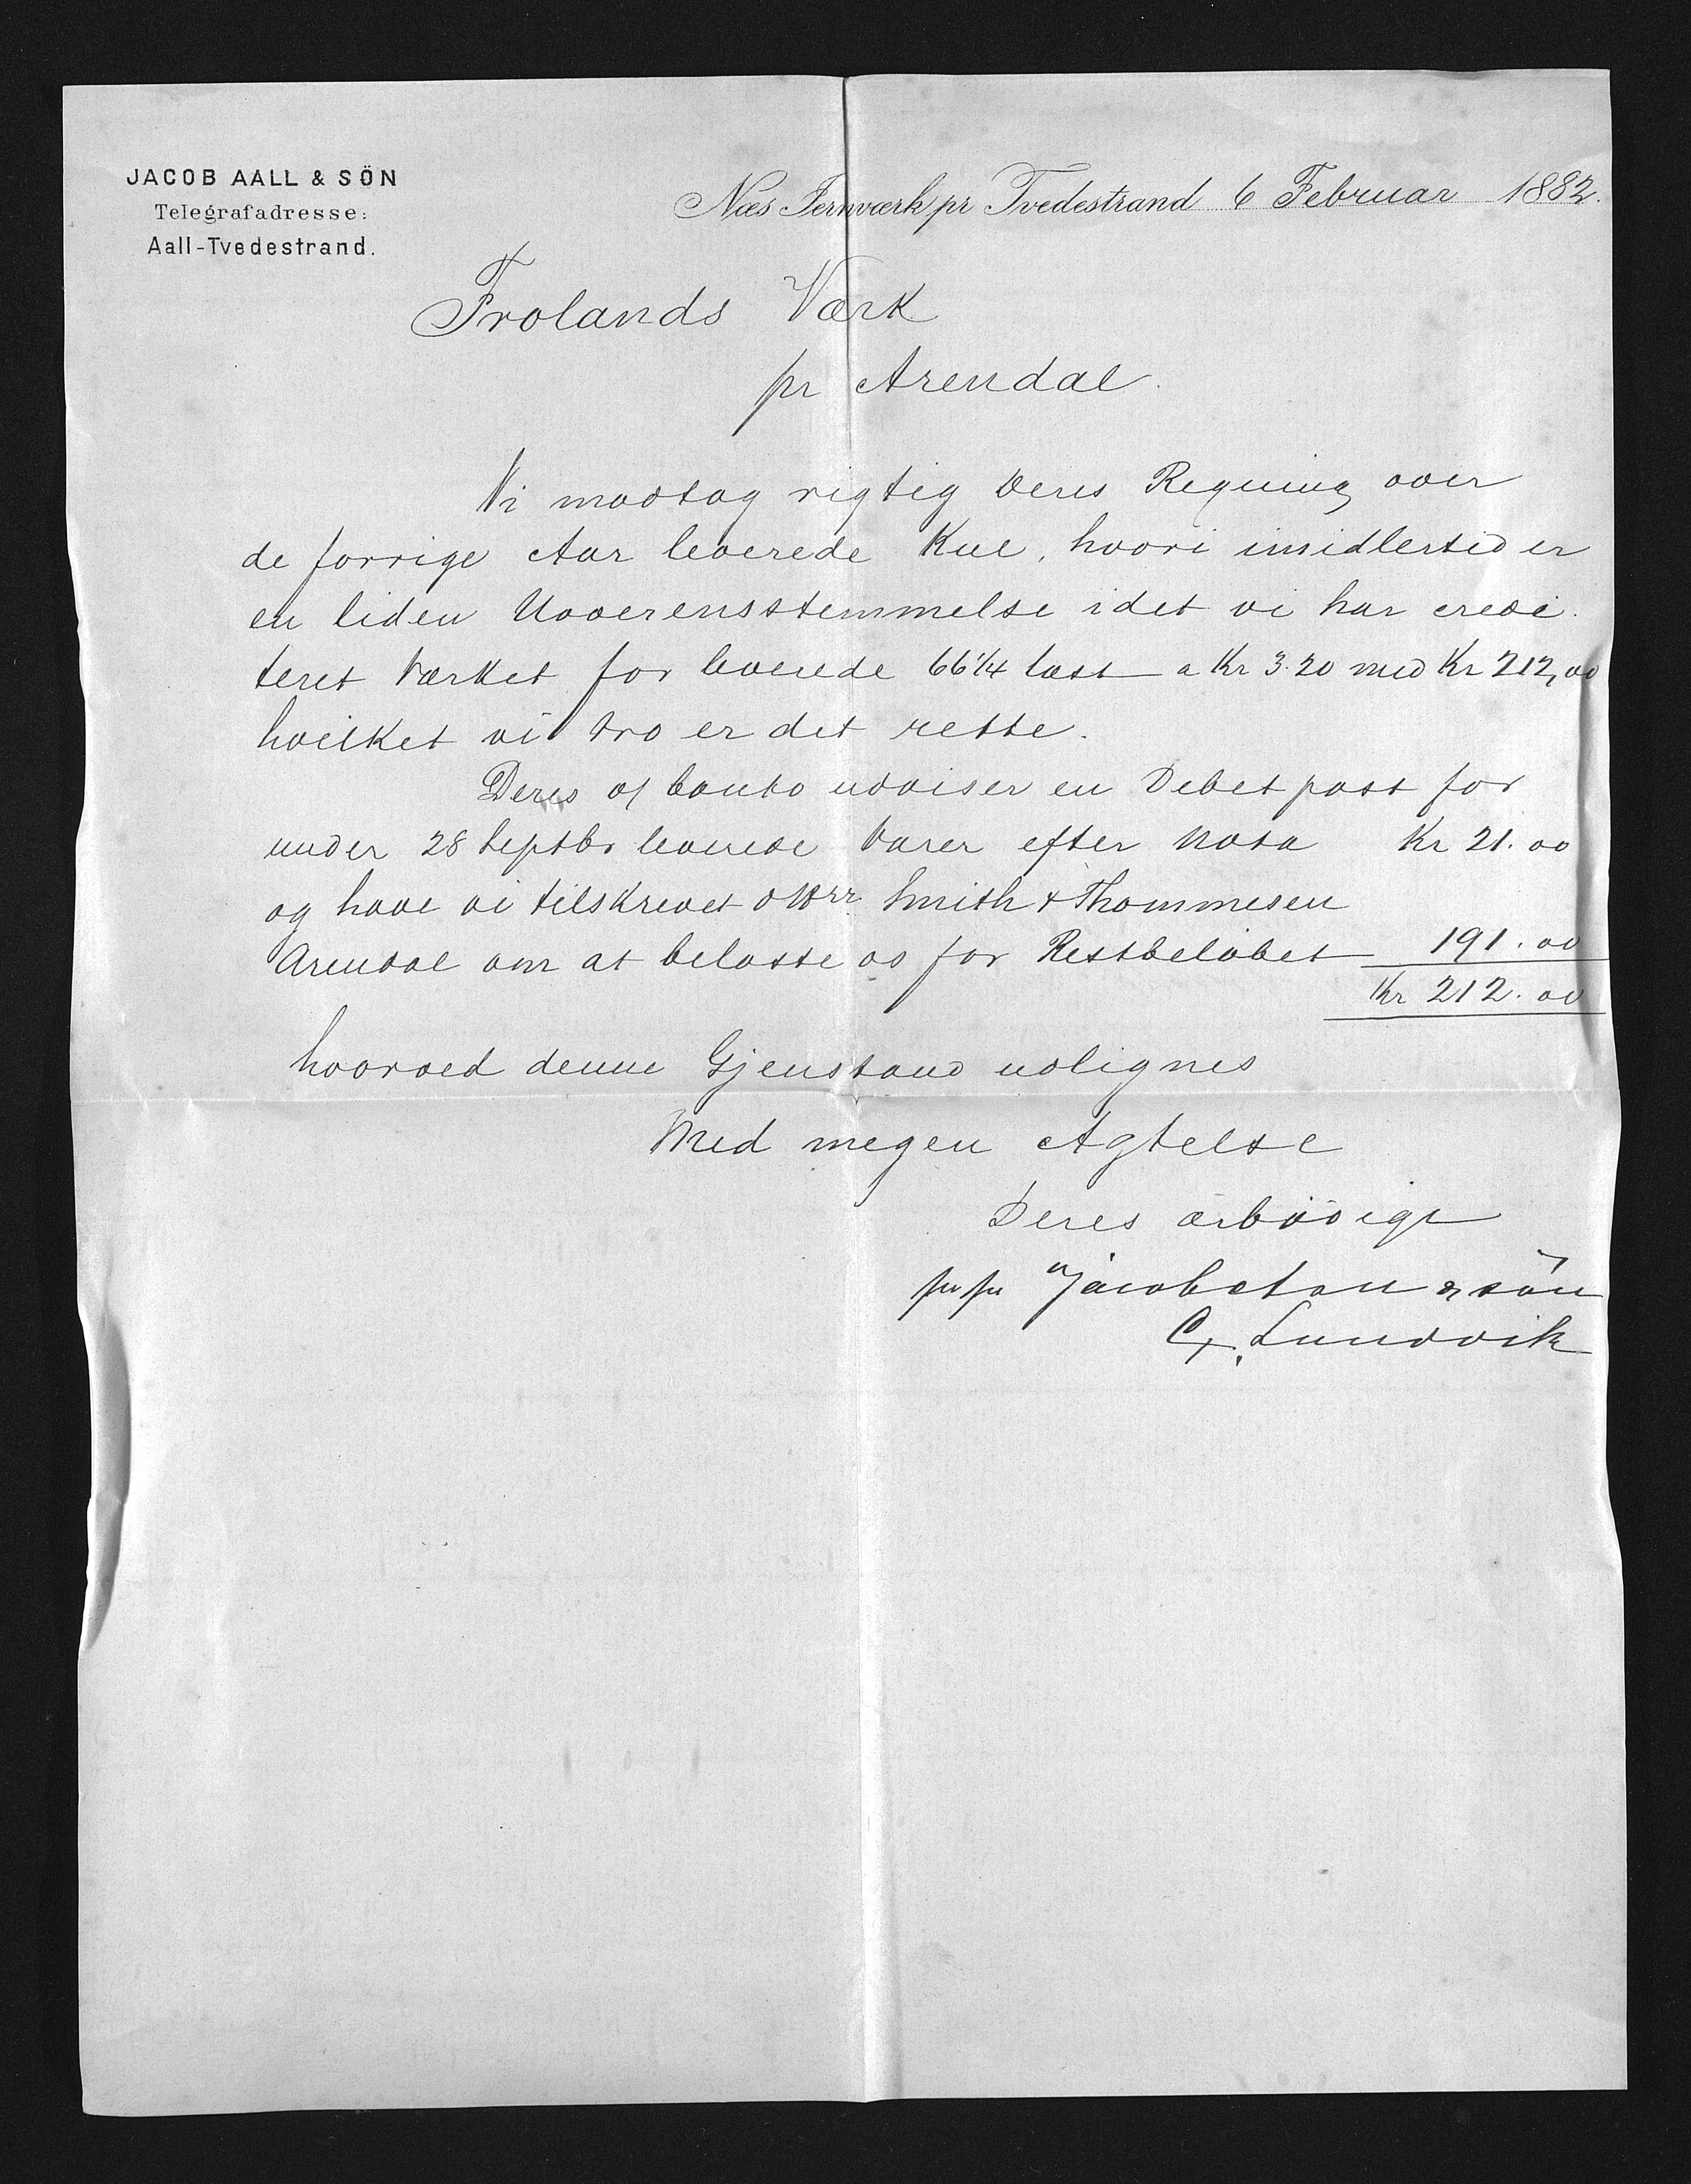 JACOB AALL & SÖN
Telegrafadresse:
Aall-Tvedestrand.
Næs Jernværk pr Tvedestrand 6 Februar 1882.
Frolands Værk
pr Arendal.
Vi modtog rigtig Deres Regning over
de forrige Aar leverede Kul, hvori imidlertid er
en liden Uoverensstemmelse idet vi har credi
teret Værket for leverede 66 1/4 læst a Kr 3.20 med Kr 212,00
hvilket vi tro er det rette.
Deres a/ Conto udviser en Debet post for
under 28 Septbr leverede Varer efter Nota Kr 21.00
og have vi tilskrevet Smith & Thommesen
Arendal om at belaste os for Restbeløbet 191.00
Kr 212.00
hvorved denne Gjenstand udlignes
Med megen Agtelse
Deres ærbødige
pr pr Jacob Aall & Søn
C. Lundvik